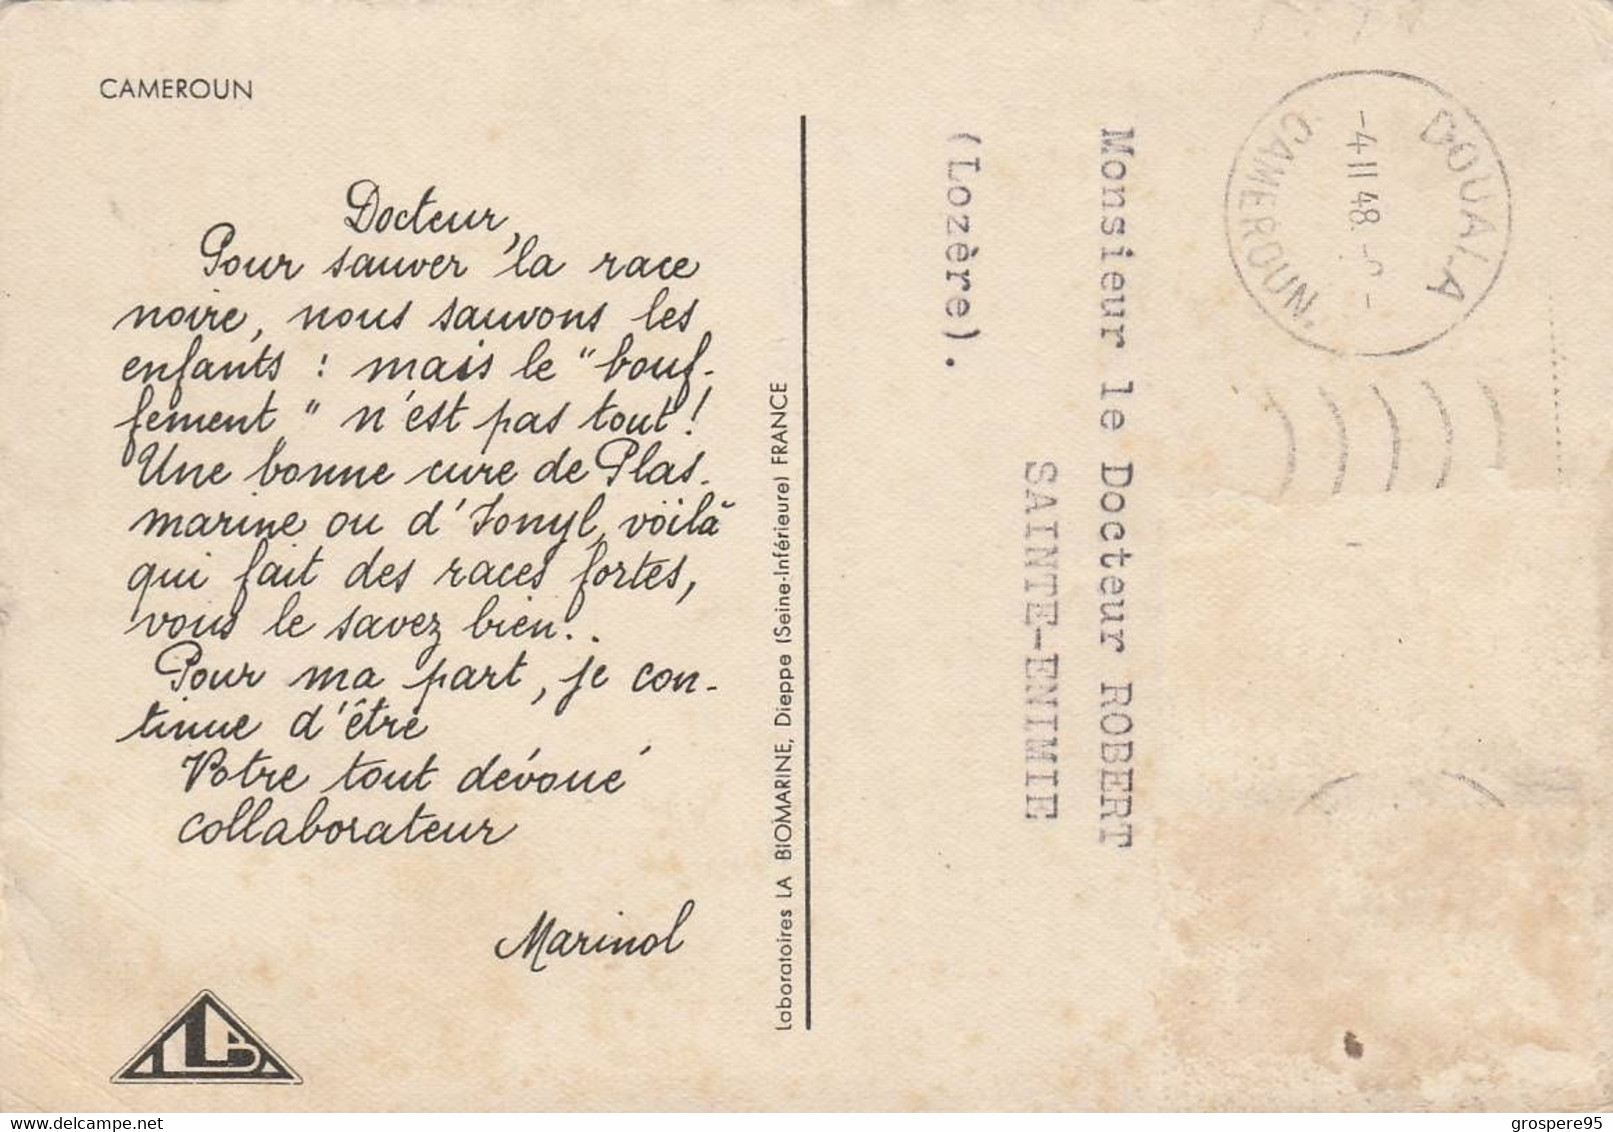 CAMEROUN
Docteur,
Pour sauver la race
noire, nous sauvons les
enfants : mais le "bouf-
fement" n'est pas tout !
Une bonne cure de Plas-
marine ou d'Ionyl, voilà
qui fait des races fortes,
vous le savez bien..
Pour ma part, je con-
tinue d'être
Votre tout dévoué
collaborateur
Marinol
Laboratoires LA BIOMARINE, Dieppe (Seine-Inférieure) FRANCE
Monsieur le Docteur ROBERT
SAINTE-ENIMIE
(Lozère).
DOUALA
-4 11 48
CAMEROUN.
grospere95